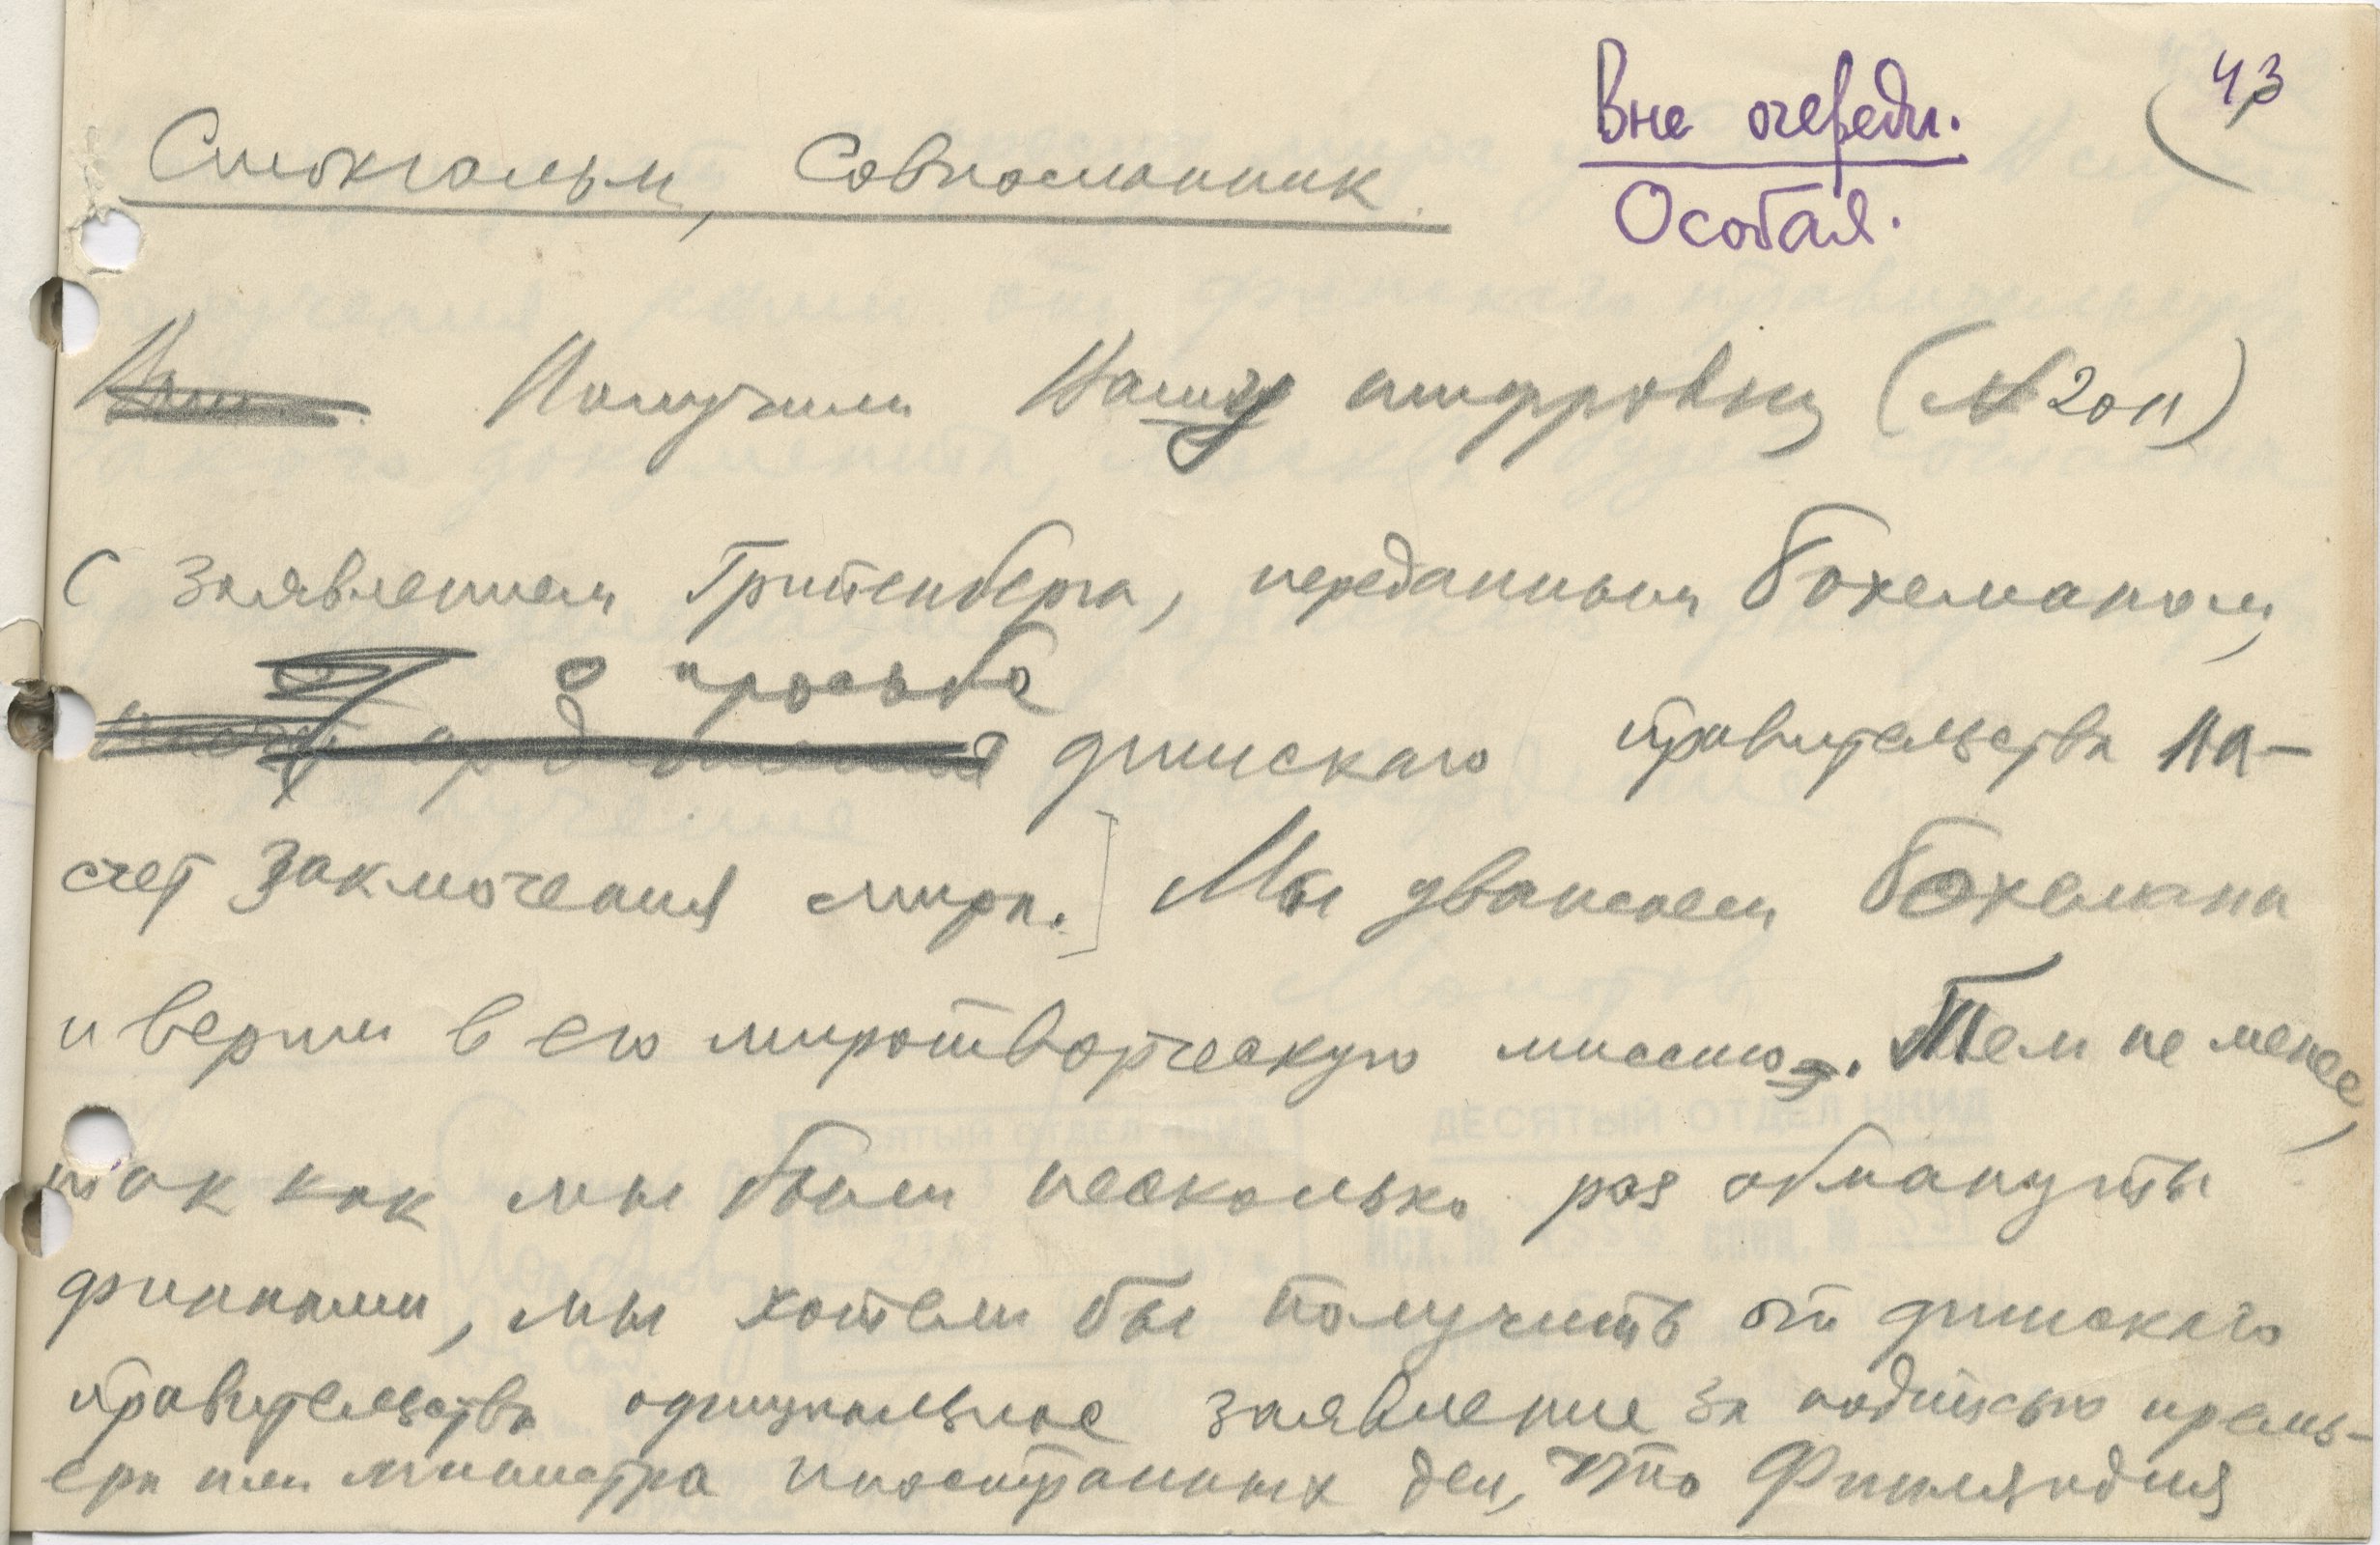 43
Вне очереди.
Особая.
Стокгольм, Совпосланник.
Получили Вашу шифровку (№2011)
с заявлением Грипенберга, переданным Бохеманом,
о просьбе
финского правительства на-
счет заключения мира.] Мы уважаем Бохемана
и верим в его миротворческую миссию. Тем не менее,
так как мы были несколько раз обмануты
финнами, мы хотели бы получить от финского
правительства официальное заявление за подписью премь-
ера или министра иностранных дел, что Финляндия